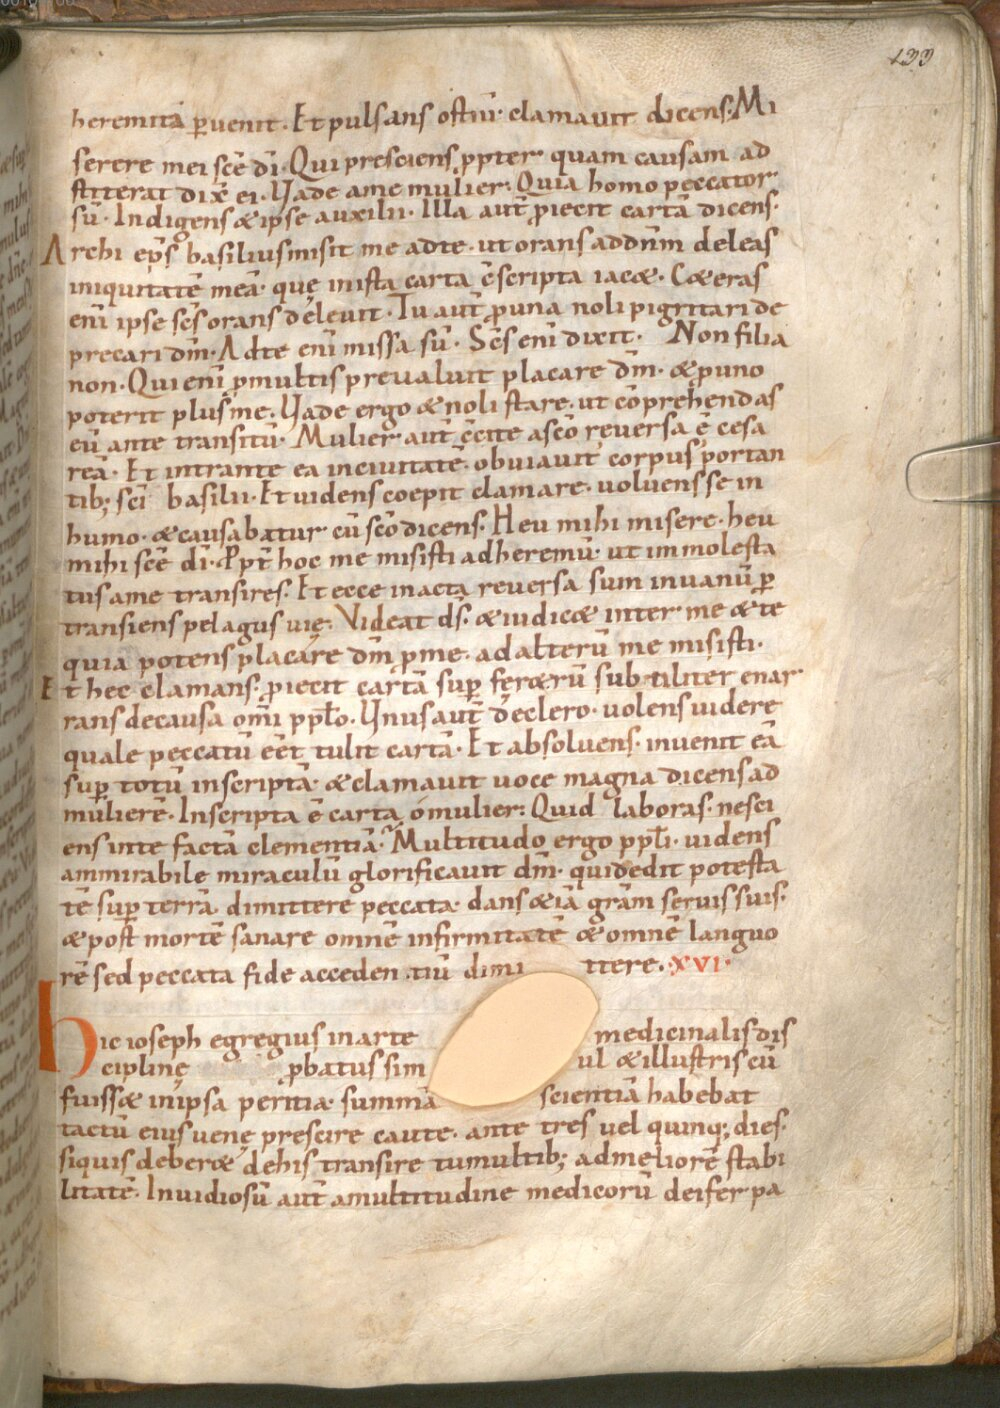 133
heremitā ꝑuenit. Et pulsans ostiū. clamauit dicens. Mi
serere mei scē dī. Qui presciens ꝓpter quam causam ad
stiterat dix̄ ei. Vade ame mulier. Quia homo peccator
sū. Indigens & ipse auxilii. Illa aut̄ ꝓiecit cartā dicens.
Archi ep̄s basilius misit me adte. ut orans addn̄m deleas
iniquitatē meā. quę inista carta ē scripta iac&. C&eras
enī ipse scs̄ orans deleuit. Tu aut̄ ꝓuna noli pigritari de
precari dm̄. Adte enī missa sū. Scs̄ enī dixit. Non filia
non. Qui enī ꝓmultis preualuit placare dm̄. & puno
poterit plus me. Vade ergo & noli stare. ut cōprehendas
eū ante transitū. Mulier aut̄ ēcite ascō reuersa ē cesa
reā. Et intrante ea inciuitatē. obuiauit corpus portan
tib; scī basilii. Et uidens coepit clamare. uoluens se in
humo. & causabatur cū scō dicens. Heu mihi misere. heu
mihi scē dī. Ppt̄ hoc me misisti adheremū. ut immolesta
tus ame transires. Et ecce inacta reuersa sum inuanū ꝑ
transiens pelagus uię. Videat ds̄. & iudic& inter me & te
quia potens placare dm̄ ꝓme. ad alterū me misisti.
Et hec clamans. ꝓiecit cartā suꝑ fer&rū subtiliter enar
rans decausa om̄i pplo. Vnus aut̄ declero. uolens uidere
quale peccatū eēt tulit cartā. Et absoluens. inuenit eā
suꝑ totū inscriptā. & clamauit uoce magna dicens ad
mulierē. Inscripta ē carta ó mulier. Quid laboras. nesci
ens inte factā clementiā. Multitudo ergo ppli. uidens
ammirabile miraculū glorificauit dm̄. qui dedit potesta
tē suꝑ terrā. dimittere peccata. dans &iā grām seruis suis.
& post mortē sanare omnē infirmitatē & omnē languo
rē sed peccata fide acceden tiū dimi ttere. XVI.
Hic ioseph egregius in arte medicinalis dis
ciplinę ꝓbatus sim ul & illustris cū
fuiss& inipsa peritia. summā scientiā habebat
tactū eius uenę prescire caute. ante tres uel quinq; dies.
siquis deber& dehis transire tumultib; admeliorē stabi
litatē. Inuidiosū aut̄ amultitudine medicorū deifer pa